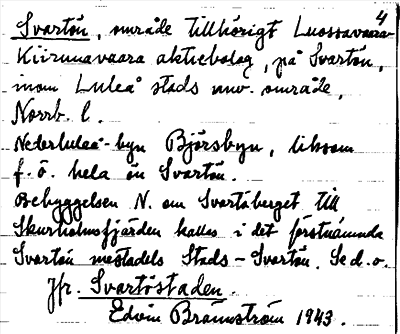 4
Svartön, område tillhörigt Luossavaara-
Kiirunavaara aktiebolag, på Svartön,
inom Luleå stads adm. område,
Norrb. l.
Nederluleå-byn Björsbyn, liksom
f. ö. hela ön Svartön.
Bebyggelsen N. om Svartöberget till
Skurholmsfjärden kallas i det förstnämnda
Svartön mestadels Stads-Svartön. Se d. o.
Jfr. Svartöstaden.
Edvin Brännström 1943.